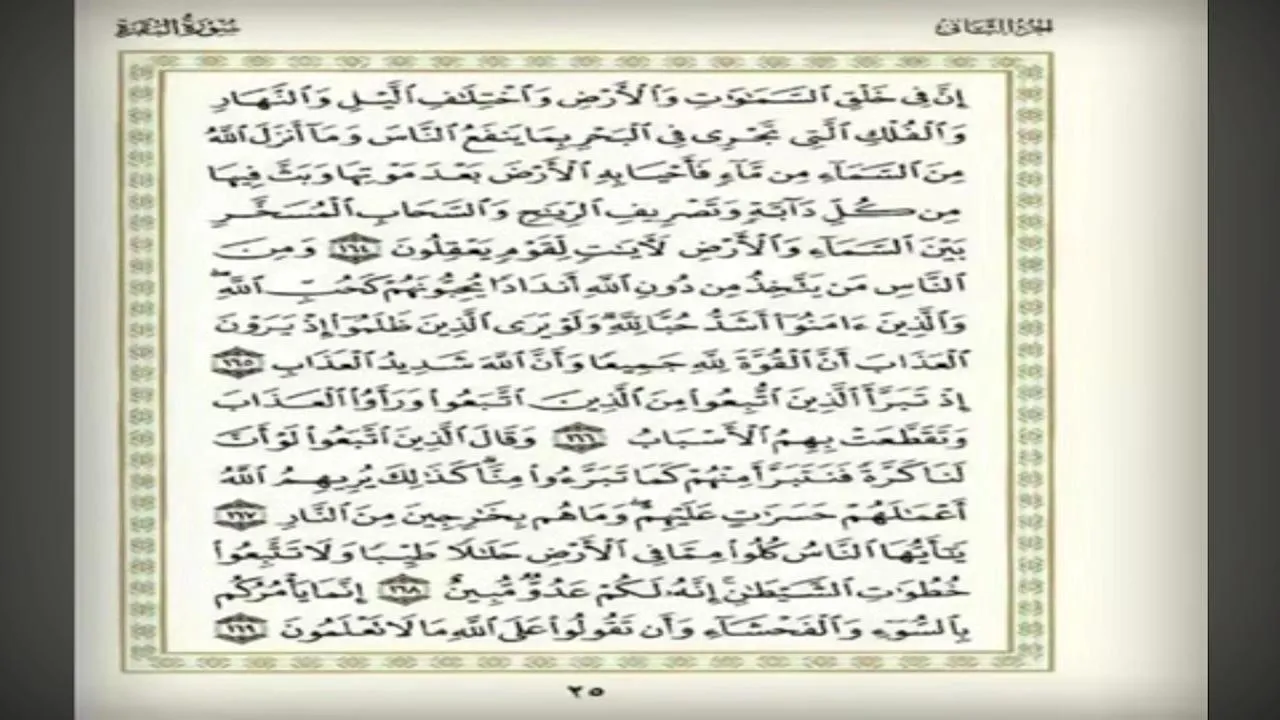 الجزء الثاني
سورة البقرة
إِنَّ فِى خَلْقِ ٱلسَّمَٰوَٰتِ وَٱلْأَرْضِ وَٱخْتِلَٰفِ ٱلَّيْلِ وَٱلنَّهَارِ
وَٱلْفُلْكِ ٱلَّتِى تَجْرِى فِى ٱلْبَحْرِ بِمَا يَنفَعُ ٱلنَّاسَ وَمَآ أَنزَلَ ٱللَّهُ
مِنَ ٱلسَّمَآءِ مِن مَّآءٍ فَأَحْيَا بِهِ ٱلْأَرْضَ بَعْدَ مَوْتِهَا وَبَثَّ فِيهَا
مِن كُلِّ دَآبَّةٍ وَتَصْرِيفِ ٱلرِّيَٰحِ وَٱلسَّحَابِ ٱلْمُسَخَّرِ
بَيْنَ ٱلسَّمَآءِ وَٱلْأَرْضِ لَءَايَٰتٍ لِّقَوْمٍ يَعْقِلُونَ ١٦٤ وَمِنَ
ٱلنَّاسِ مَن يَتَّخِذُ مِن دُونِ ٱللَّهِ أَندَادًا يُحِبُّونَهُمْ كَحُبِّ ٱللَّهِ ۖ
وَٱلَّذِينَ ءَامَنُوٓا۟ أَشَدُّ حُبًّا لِّلَّهِ ۗ وَلَوْ يَرَى ٱلَّذِينَ ظَلَمُوٓا۟ إِذْ يَرَوْنَ
ٱلْعَذَابَ أَنَّ ٱلْقُوَّةَ لِلَّهِ جَمِيعًا وَأَنَّ ٱللَّهَ شَدِيدُ ٱلْعَذَابِ ١٦٥
إِذْ تَبَرَّأَ ٱلَّذِينَ ٱتُّبِعُوا۟ مِنَ ٱلَّذِينَ ٱتَّبَعُوا۟ وَرَأَوُا۟ ٱلْعَذَابَ
وَتَقَطَّعَتْ بِهِمُ ٱلْأَسْبَابُ ١٦٦ وَقَالَ ٱلَّذِينَ ٱتَّبَعُوا۟ لَوْ أَنَّ
لَنَا كَرَّةً فَنَتَبَرَّأَ مِنْهُمْ كَمَا تَبَرَّءُوا۟ مِنَّا ۗ كَذَٰلِكَ يُرِيهِمُ ٱللَّهُ
أَعْمَٰلَهُمْ حَسَرَٰتٍ عَلَيْهِمْ ۖ وَمَا هُم بِخَٰرِجِينَ مِنَ ٱلنَّارِ ١٦٧
يَٰٓأَيُّهَا ٱلنَّاسُ كُلُوا۟ مِمَّا فِى ٱلْأَرْضِ حَلَٰلًا طَيِّبًا وَلَا تَتَّبِعُوا۟
خُطُوَٰتِ ٱلشَّيْطَٰنِ ۚ إِنَّهُۥ لَكُمْ عَدُوٌّ مُّبِينٌ ١٦٨ إِنَّمَا يَأْمُرُكُم
بِٱلسُّوٓءِ وَٱلْفَحْشَآءِ وَأَن تَقُولُوا۟ عَلَى ٱللَّهِ مَا لَا تَعْلَمُونَ ١٦٩
٢٥